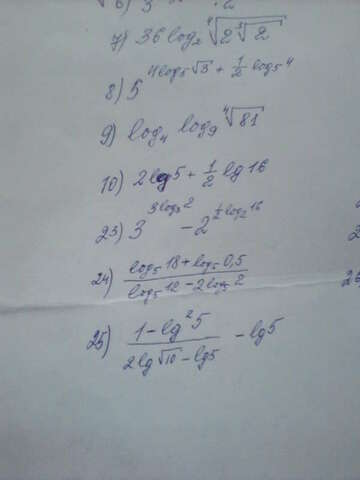 7) 36 log₂ ⁴√(2 ³√2)
8) 5^(4log₅√3 + 1/2 log₅4)
9) log₄ log₉ ⁴√81
10) 2lg5 + 1/2 lg16
23) 3^(3log₃2) - 2^(1/2 log₂16)
24) (log₅18 + log₅0,5) / (log₅12 - 2log₅2)
25) (1 - lg²5) / (2lg√10 - lg5) - lg5